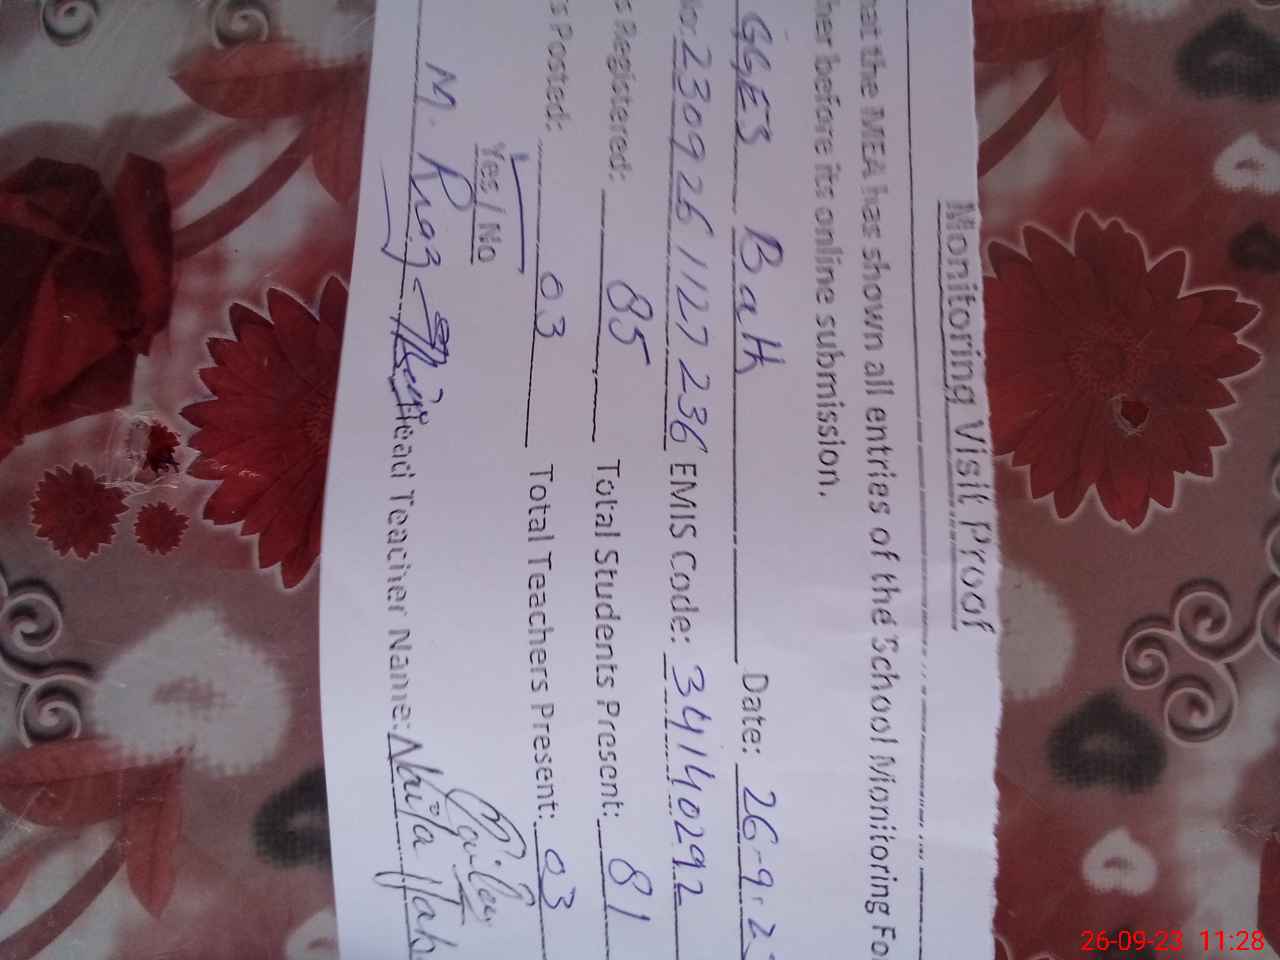 Monitoring Visit Proof
hat the MEA has shown all entries of the School Monitoring Fo
her before its online submission.
GGES Bath Date: 26-9-2
No: 230926 1127 236 EMIS Code: 34140292
s Registered: 85 Total Students Present: 81
s Posted: 03 Total Teachers Present: 03
Yes / No
M. Riaz Head Teacher Name: Naila
26-09-23 11:28